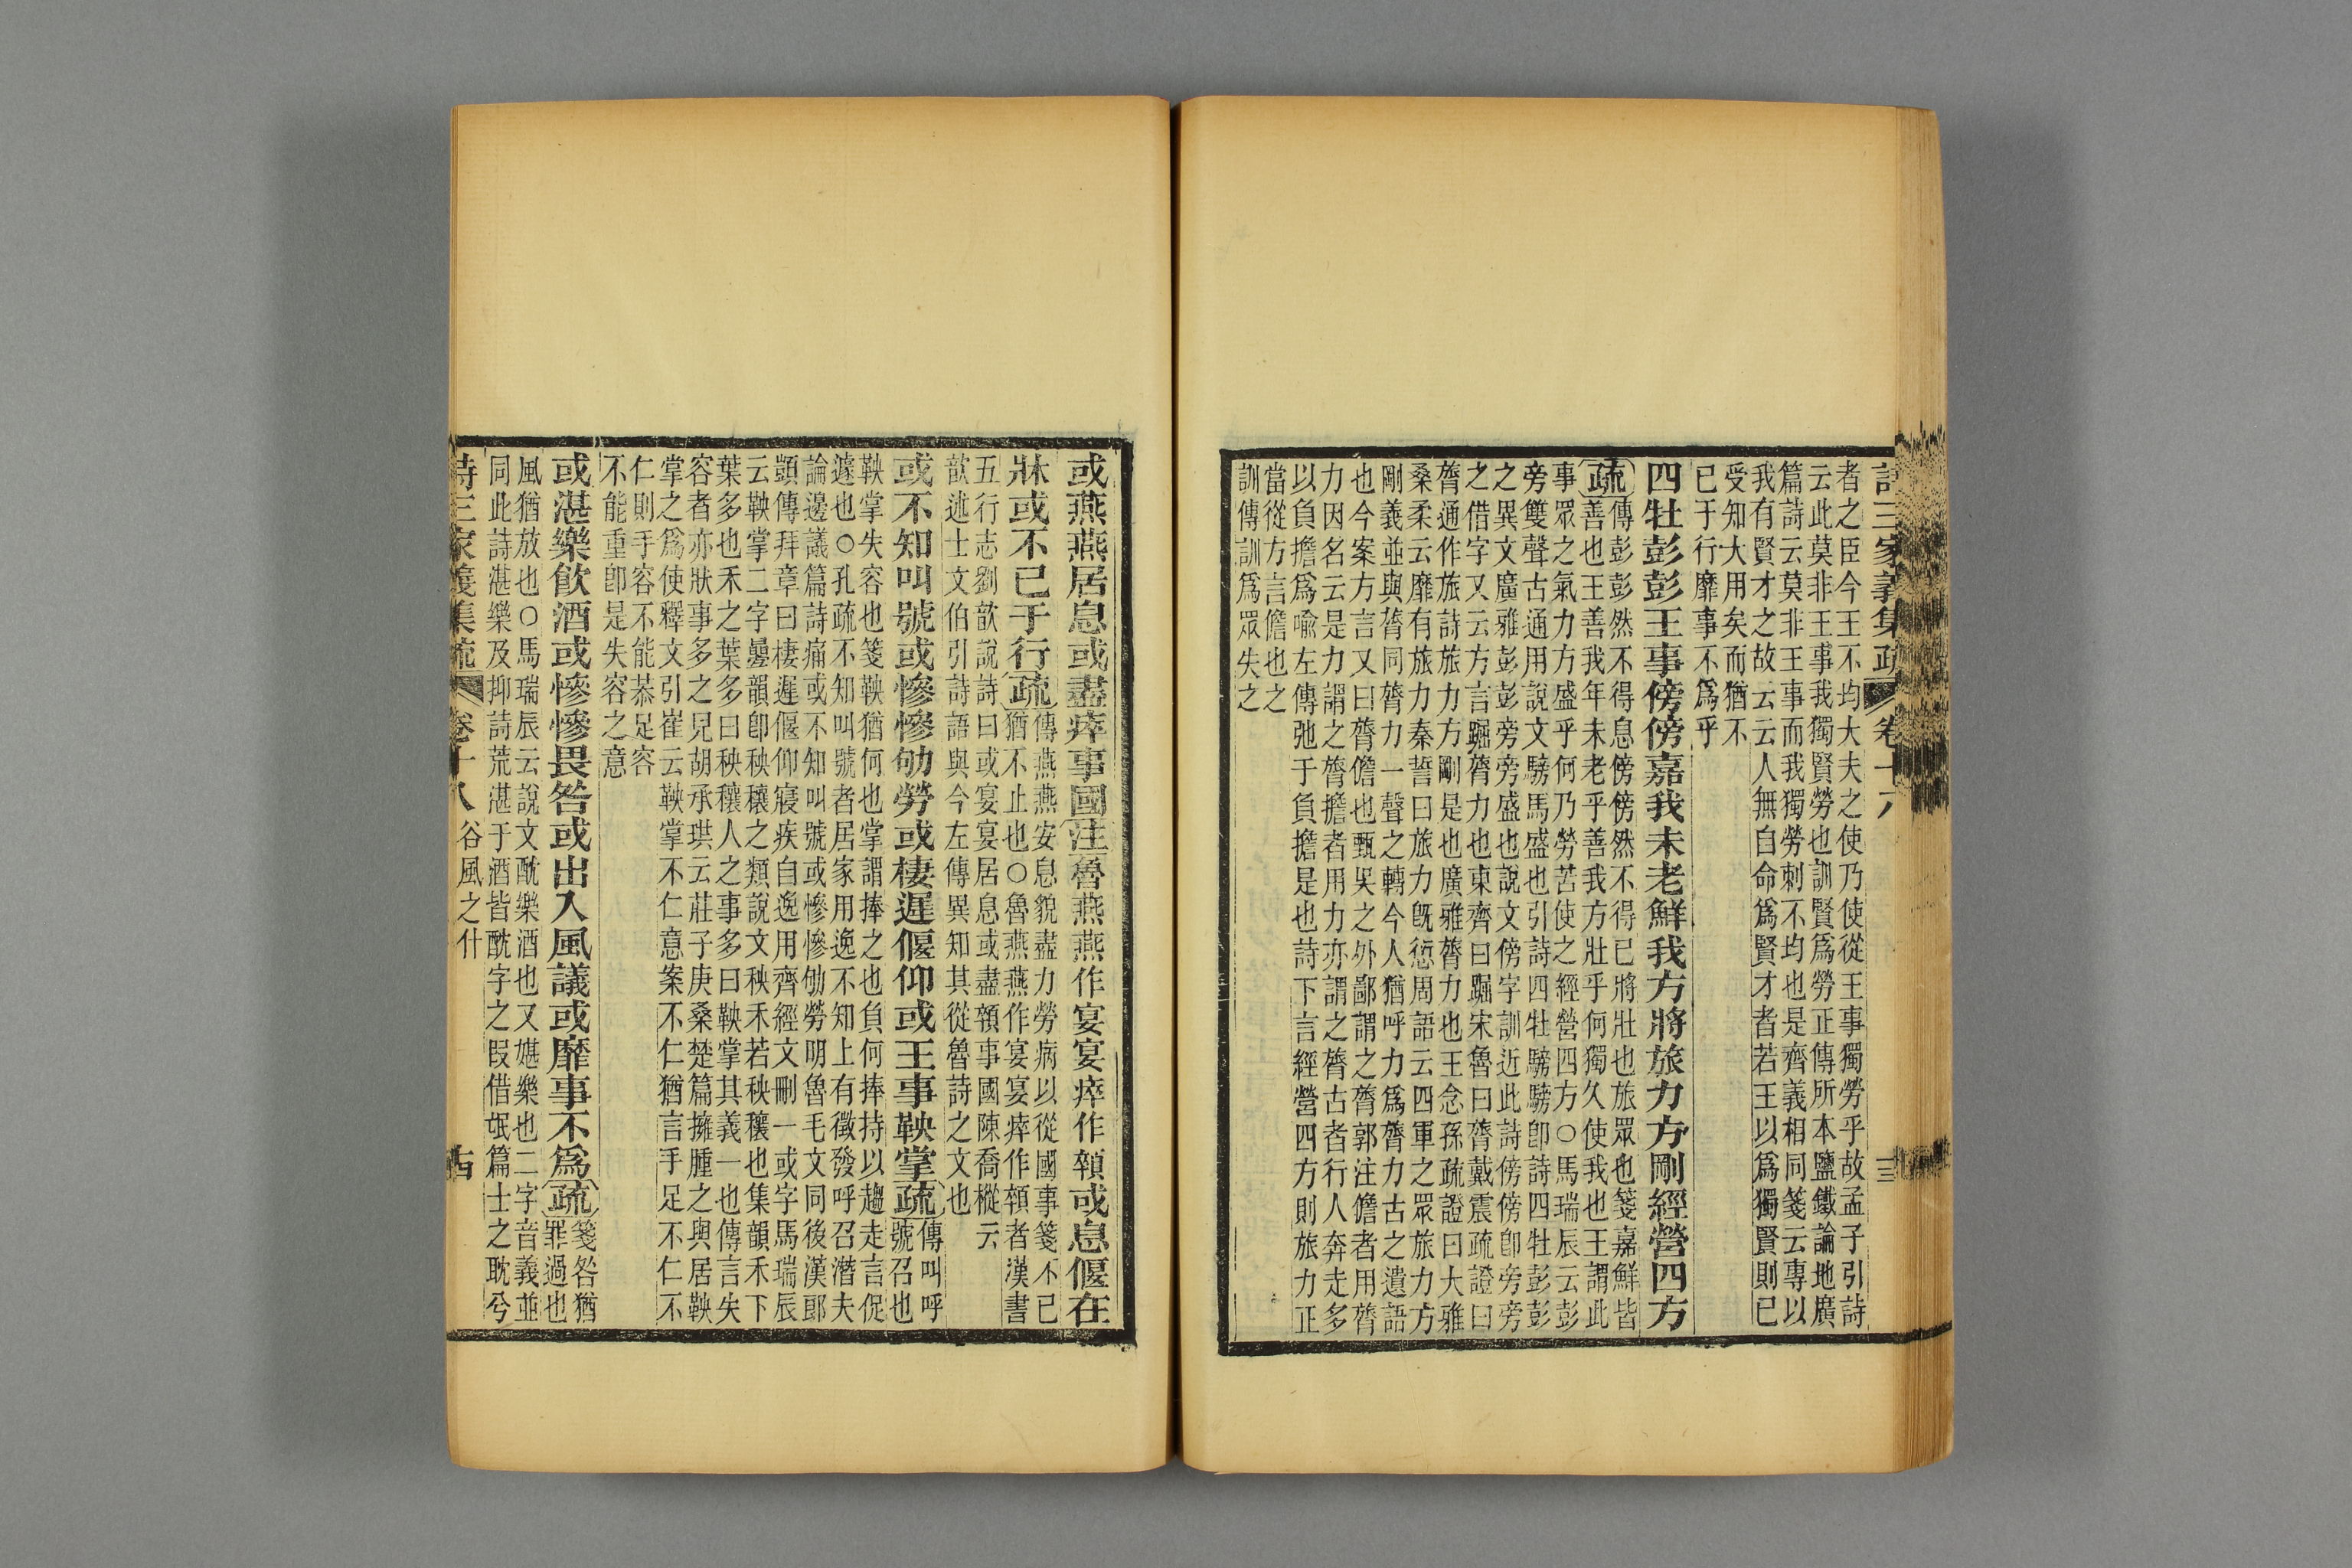 詩三家義集疏 卷十八 十三
者之臣今王不均大夫之使乃使從王事獨勞乎故孟子引詩
云此莫非王事我獨賢勞也訓賢爲勞正傳所本鹽鐵論地廣
篇詩云莫非王事而我獨勞刺不均也是齊義相同箋云專以
我有賢才之故云云人無自命爲賢才者若王以爲獨賢則已
受知大用矣而猶不
已于行靡事不爲乎
四牡彭彭王事傍傍嘉我未老鮮我方將旅力方剛經營四方
疏
傳彭彭然不得息傍傍然不得已將壯也旅眾也箋嘉鮮皆
善也王善我年未老乎善我方壯乎何獨久使我也王謂此
事眾之氣力方盛乎何乃勞苦使之經營四方○馬瑞辰云彭
旁雙聲古通用說文騯馬盛也引詩四牡騯騯卽詩四牡彭彭
之異文廣雅彭彭旁旁盛也說文傍字訓近此詩傍傍卽旁旁
之借字又云方言䠢膂力也東齊曰䠢宋魯曰膂戴震疏證曰
膂通作旅詩旅力方剛是也廣雅膂力也王念孫疏證曰大雅
桑柔云靡有旅力秦誓曰旅力旣愆周語云四軍之眾旅力方
剛義並與膂同膂力一聲之轉今人猶呼力爲膂力古之遺語
也今案方言又曰膂儋也甄吳之外鄙謂之膂郭注儋者用膂
力因名云是力謂之膂擔者用力亦謂之膂古者行人奔走多
以負擔爲喻左傳弛于負擔是也詩下言經營四方則旅力正
當從方言儋也之
訓傳訓爲眾失之
或燕燕居息或盡瘁事國注魯燕燕作宴宴瘁作顇或息偃在
牀或不已于行疏
傳燕燕安息貌盡力勞病以從國事箋不已
猶不止也○魯燕燕作宴宴瘁作顇者漢書
五行志劉歆說詩曰或宴宴居息或盡顇事國陳喬樅云
歆述士文伯引詩語與今左傳異知其從魯詩之文也
或不知叫號或慘慘劬勞或棲遲偃仰或王事鞅掌疏
傳叫呼
號召也
鞅掌失容也箋鞅猶何也掌謂捧之也負何捧持以趨走言促
遽也○孔疏不知叫號者居家用逸不知上有徵發呼召潛夫
論邊議篇詩痛或不知叫號或慘慘劬勞明魯毛文同後漢郎
顗傳拜章曰棲遲偃仰寢疾自逸用齊經文刪一或字馬瑞辰
云鞅掌二字疊韻卽秧穰之類說文秧禾若秧穰也集韻禾下
葉多也禾之葉多曰秧穰人之事多曰鞅掌其義一也傳言失
容者亦狀事多之皃胡承珙云莊子庚桑楚篇擁腫之與居鞅
掌之爲使釋文引崔云鞅掌不仁意案不仁猶言手足不仁不
仁則手容不能恭足容
不能重卽是失容之意
或湛樂飲酒或慘慘畏咎或出入風議或靡事不爲疏
箋咎猶
罪過也
風猶放也○馬瑞辰云說文酖樂酒也又媅樂也二字音義並
同此詩湛樂及抑詩荒湛于酒皆酖字之叚借氓篇士之耽兮
詩三家義集疏 卷十八 谷風之什 十四